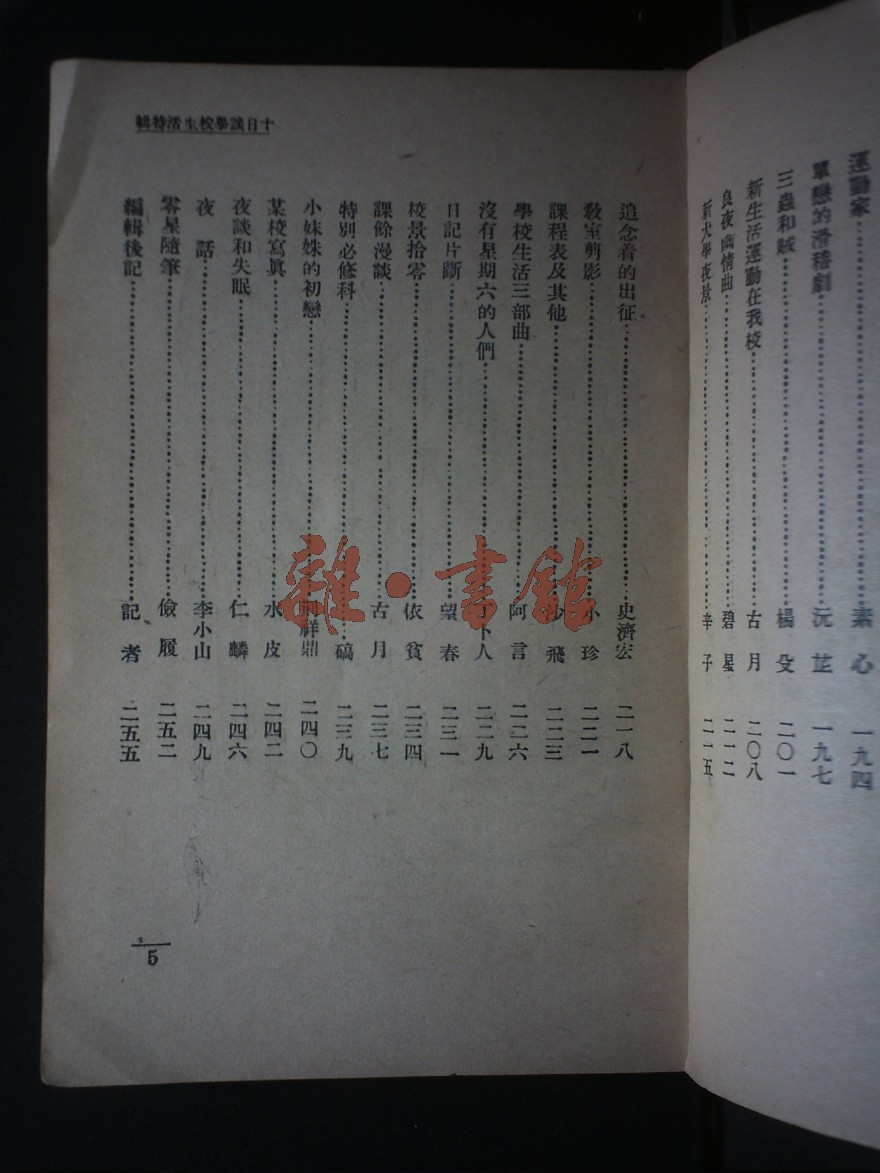 運動家……素心 一九四
單戀的滑稽劇……沅芷 一九七
三蟲和賊……楊殳 二〇一
新生活運動在我校……古月 二〇八
良夜幽情曲……碧星 二一二
新大學夜景……辛子 二一五
十日談學校生活特輯
追念着的出征……史濟宏 二一八
教室剪影……小珍 二二一
課程表及其他……沙飛 二二三
學校生活三部曲……阿言 二二六
沒有星期六的人們……卜人 二二九
日記片斷……望春 二三一
校景拾零……依貧 二三四
課餘漫談……古月 二三七
特別必修科……碻 二三九
小妹妹的初戀……荆祥鼎 二四〇
某校寫眞……水皮 二四二
夜談和失眠……仁麟 二四六
夜話……李小山 二四九
零星隨筆……儉履 二五二
編輯後記……記者 二五五
5
雜·書館